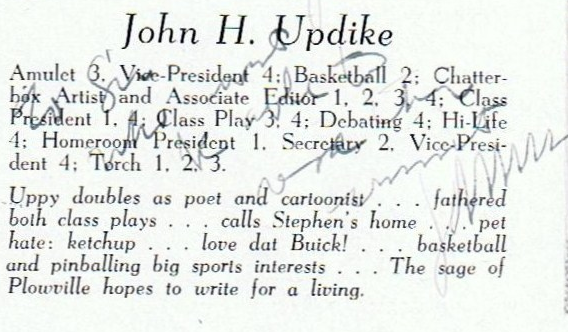 John H. Updike
Amulet 3. Vice-President 4; Basketball 2; Chatter-
box Artist and Associate Editor 1, 2, 3, 4; Class
President 1, 4; Class Play 3, 4; Debating 4; Hi-Life
4; Homeroom President 1, Secretary 2, Vice-Presi-
dent 4; Torch 1, 2, 3.
Uppy doubles as poet and cartoonist . . . fathered
both class plays . . . calls Stephen's home . . . pet
hate: ketchup . . . love dat Buick! . . . basketball
and pinballing big sports interests . . . The sage of
Plowville hopes to write for a living.